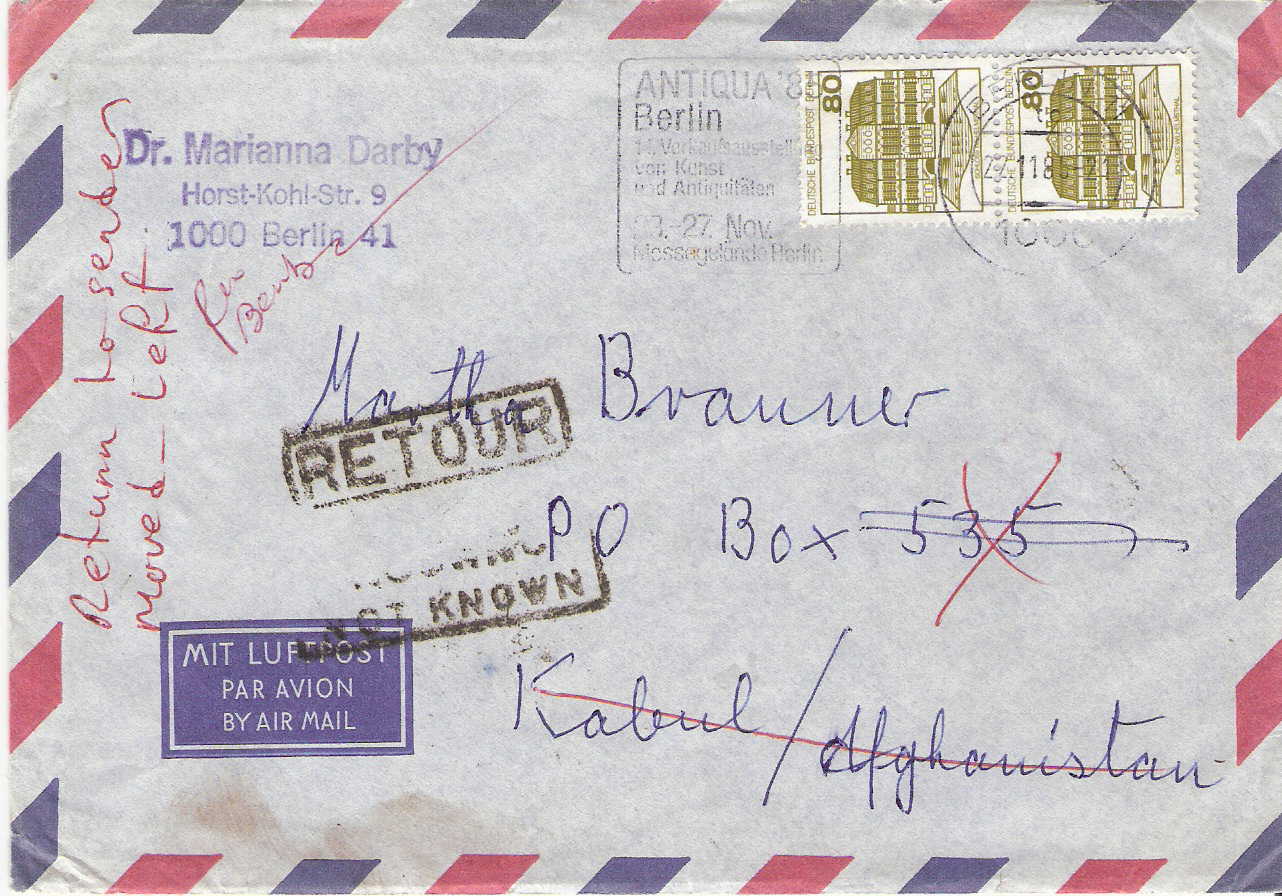 Dr. Marianna Darby
Horst-Kohl-Str. 9
1000 Berlin 41
ANTIQUA '8
Berlin
14. Verkaufsausstellung
von Kunst
und Antiquitäten
-27. Nov.
Messegelände Berlin
80
DEUTSCHE BUNDESPOST BERLIN
80
DEUTSCHE BUNDESPOST BERLIN
1000
Return to sender
moved - Left
Martha Brauner
RETOUR
PO Box 535
NOT KNOWN
Kabul / Afghanistan
MIT LUFTPOST
PAR AVION
BY AIR MAIL